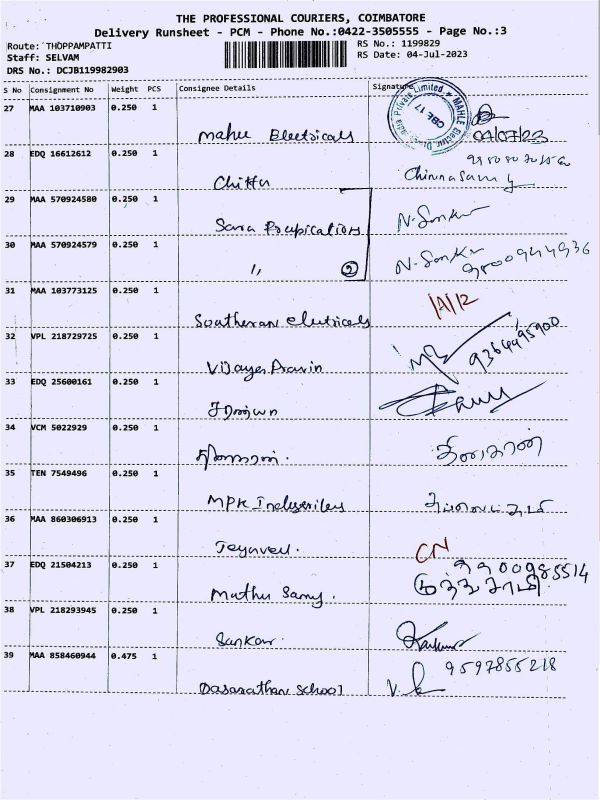 THE PROFESSIONAL COURIERS, COIMBATORE
Delivery Runsheet - PCM - Phone No.:0422-3505555 - Page No.:3
Route: THOPPAMPATTI RS No.: 1199829
Staff: SELVAM RS Date: 04-Jul-2023
DRS No.: DCJB119982903
S No Consignment No Weight PCS Consignee Details Signature
27 MAA 103710903 0.250 1
Mahle Electricals 04/07/23
28 EDQ 16612612 0.250 1
Chitta Chinnasamy
29 MAA 570924580 0.250 1
Sara N. Sankar
30 MAA 570924579 0.250 1
〃 2 N. Sankar
9800944936
31 MAA 103773125 0.250 1
Southeran electricals
32 VPL 218729725 0.250 1
Vijaya Pravin 9364495900
33 EDQ 25600161 0.250 1
சரண்யா
34 VCM 5022929 0.250 1
தினகரன்
35 TEN 7549496 0.250 1
MPK
36 MAA 860306913 0.250 1
Jeyavel. CN
37 EDQ 21504213 0.250 1
Muthu Samy. முத்துசாமி
38 VPL 218293945 0.250 1
Sankar.
39 MAA 858460944 0.475 1 9597855218
Dasarathan School